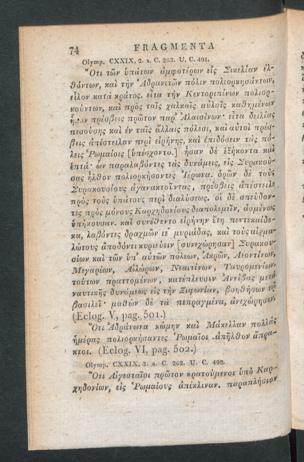 74 FRAGMENTA
Olymp. CXXIX, 2. a. C. 263. U. C. 491.
Ὅτι τῶν ὑπάτων ἀμφοτέρων εἰς Σικελίαν ἐλ-
θόντων, καὶ τὴν Ἀδρανιτῶν πόλιν πολιορκησάντων,
εἷλον κατὰ κράτος. εἶτα τὴν Κεντοριπίνων πολιορ-
κούντων, καὶ πρὸς ταῖς χαλκαῖς αὐλαῖς καθημένων
ἧκον πρέσβεις πρῶτον παρ' Ἀλαισίνων· εἶτα δειλίας
πεσούσης καὶ ἐν ταῖς ἄλλαις πόλεσι, καὶ αὐτοὶ πρέσ-
βεις ἀπέστειλαν περὶ εἰρήνης, καὶ ἐπιδόσειν τὰς πό-
λεις Ῥωμαίοις [ὑπέσχοντο.] ἦσαν δὲ ἑξήκοντα καὶ
ἑπτά· ὧν παραλαβόντες τὰς δυνάμεις, εἰς Συρακού-
σας ἦλθον πολιορκήσοντες Ἱέρωνα. ὁρῶν δὲ τοὺς
Συρακουσίους ἀγανακτοῦντας, πρέσβεις ἀπέστειλε
πρὸς τοὺς ὑπάτους περὶ διαλύσεως. οἱ δὲ σπεύδον-
τες πρὸς μόνους Καρχηδονίους διαπολεμεῖν, ἀσμένως
ὑπήκουσαν. καὶ συνέθεντο εἰρήνην ἔτη πεντεκαίδε-
κα, λαβόντες δραχμῶν ιε΄ μυριάδας, καὶ τοὺς αἰχμα-
λώτους ἀποδόντι κυριεύειν [συνεχώρησαν] Συρακου-
σίων καὶ τῶν ὑπ' αὐτῶν πόλεων, Ἀκρῶν, Λεοντίνων,
Μεγαρέων, Αἰλώρων, Νεαιτίνων, Ταυρομενίων.
τούτων πραττομένων, κατέπλευσεν Ἀννίβας μετὰ
ναυτικῆς δυνάμεως εἰς τὴν Ξιφωνίαν, βοηθήσων τῷ
βασιλεῖ· μαθὼν δὲ τὰ πεπραγμένα, ἀνεχώρησεν.
(Eclog. V, pag. 501.)
Ὅτι Ἀδράνωνα κώμην καὶ Μάκελλαν πολλὰς
ἡμέρας πολιορκήσαντες Ῥωμαῖοι ἀπῆλθον ἄπρα-
κτοι. (Eclog. VI, pag. 502.)
Olymp. CXXIX, 3. a. C. 262. U. C. 492.
Ὅτι Αἰγεσταῖοι πρῶτον κρατούμενοι ὑπὸ Καρ-
χηδονίων, εἰς Ῥωμαίους ἀπέκλιναν. παραπλήσιον